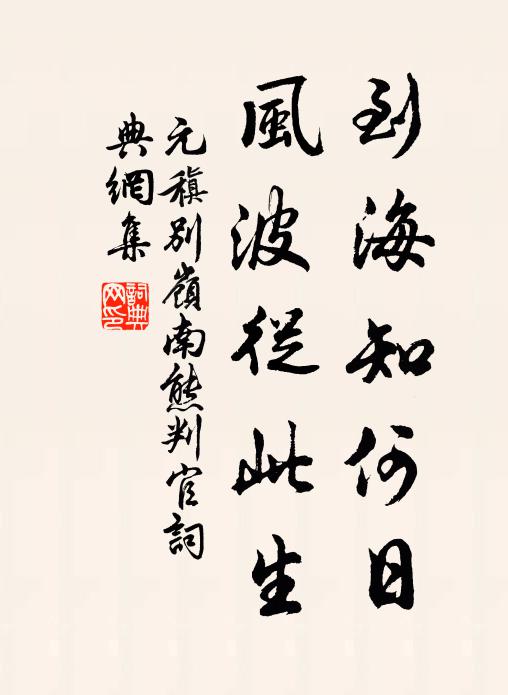 到海知何日
風波從此生
元稹別嶺南熊判官詞
典網集
詞典
网印